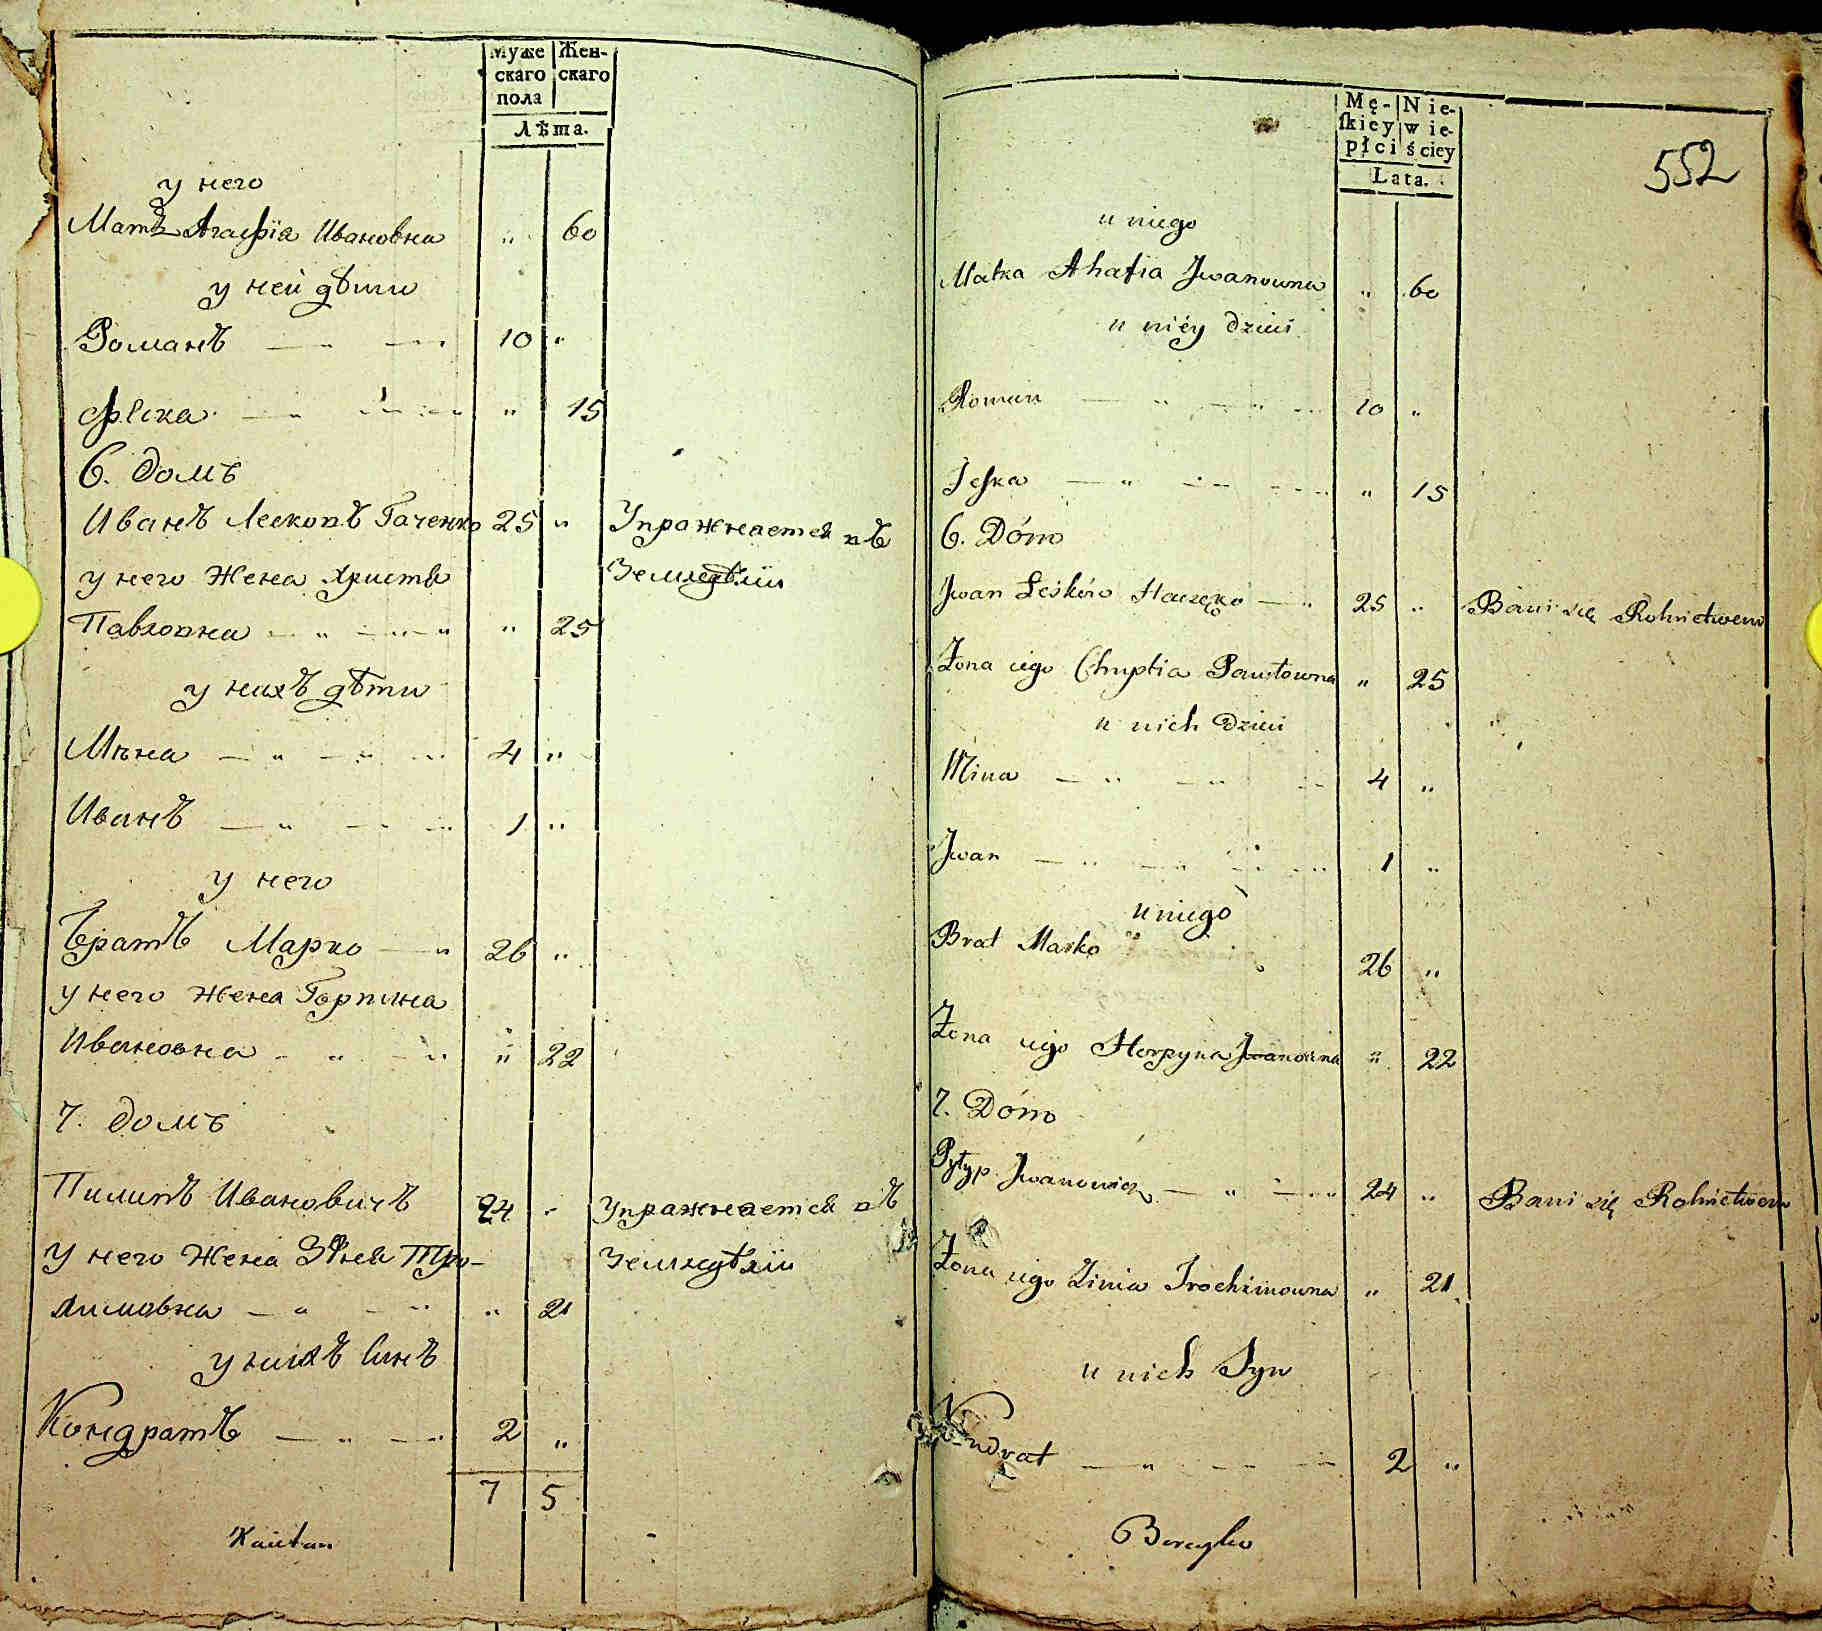 Муже Жен-
скаго скаго
пола
Лѣта.
у него
Мать Агафія Ивановна " 60
у ней дѣти
Романъ 10 "
Ѳеска " 15
6. домъ
Иванъ Лесковъ Гаченко 25 " Упражнается въ
у него Жена Христя Земледѣліи
Павловна " 25
у нихъ дѣти
Мина 4 "
Иванъ 1 "
у него
Братъ Марко 26 "
у него Жена Горпина
Ивановна " 22
7. домъ
Пилипъ Ивановичъ 24 " Упражнается въ
у него Жена Зѣня Тро- Земледѣліи
химовна " 21
у нихъ Синъ
Кондратъ 2 "
7 5
Kaietan
Mę- Nie-
skiey wie-
płci ściey
Lata.
552
u niego
Matka Ahafia Jwanowna " 60
u niéy dzieci
Roman 10 "
Jeska " 15
6. Dóm
Jwan Leśków Haczęko 25 " Bawi się Rolnictwem
Żona iego Chrystia Pawłowna " 25
u nich dzieci
Mina 4 "
Jwan 1 "
u niego
Brat Marko 26 "
Żona iego Horpyna Jwanowna " 22
7. Dóm
Pyłyp Jwanowicz 24 " Bawi się Rolnictwem
Żona iego Zinia Trochimowna " 21
u nich Syn
Kondrat 2 "